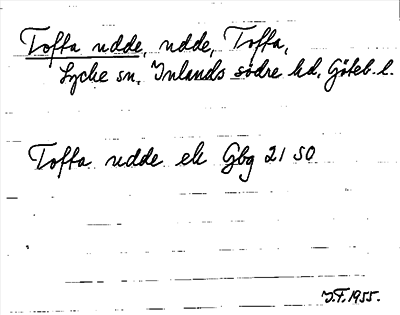 Toffa udde, udde, Toffa,
Lycke sn, Inlands södre hd, Göteb. l.
Toffa udde ek Gbg 21 SO
J.F. 1955.